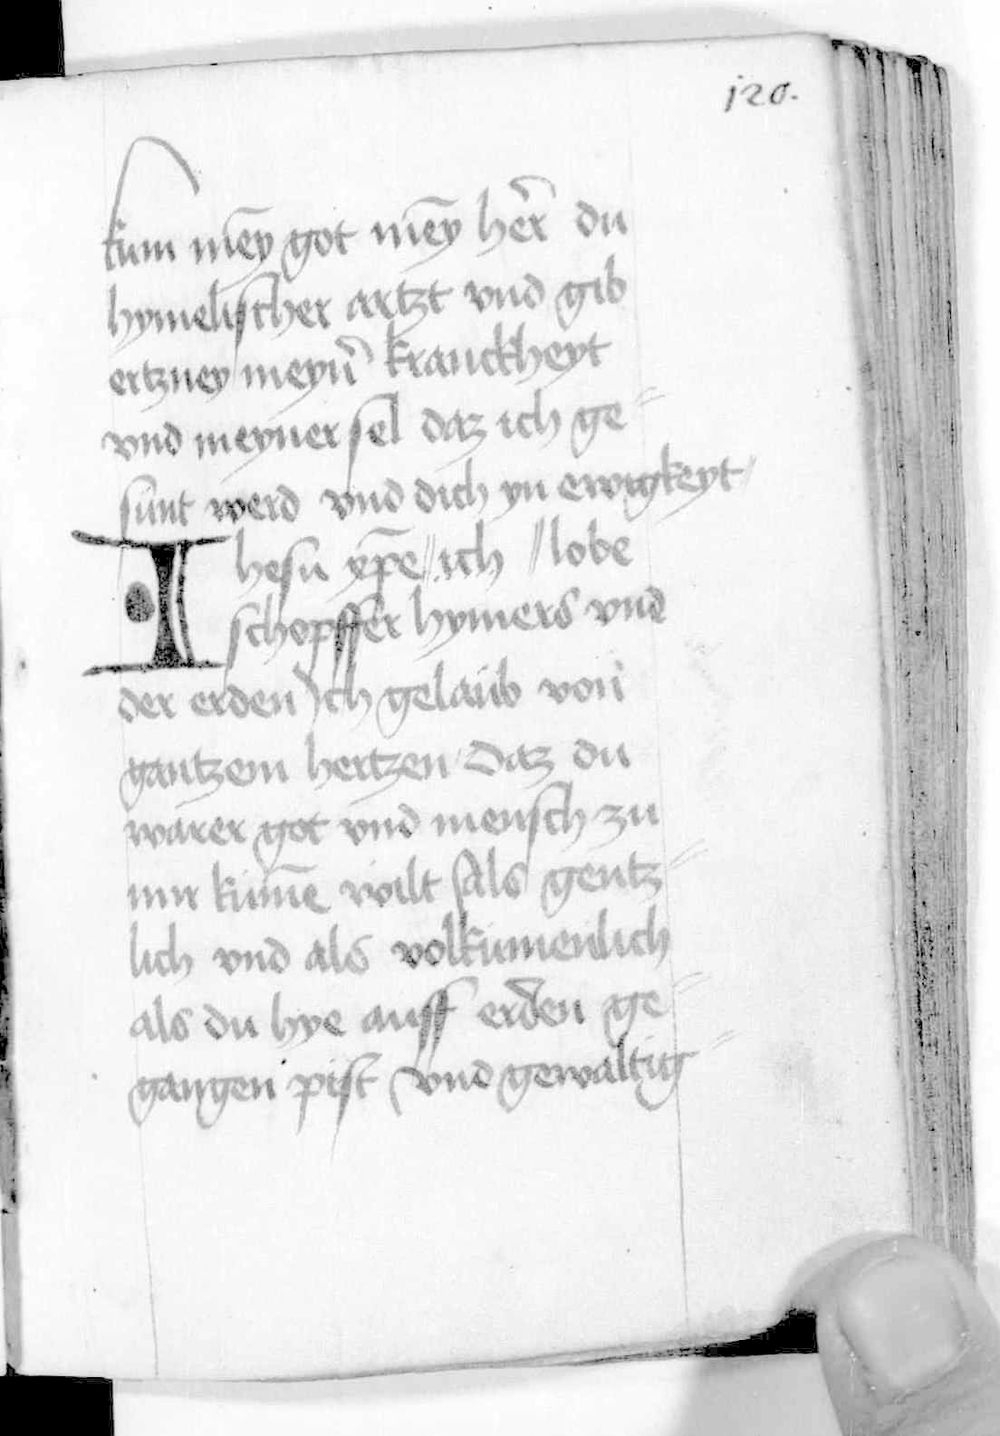 120.
kum mēy got mēy her̄ du
hymelischer artzt vnd gib
ertzney meyn̄ kranckheyt
vnd meyner sel daz ich ge=
sunt werd vnd dich yn ewigkeyt //
Ihesu xp̄e // ich // lobe
schopffer hymels vnd
der erden Ich gelaub von
gantzem hertzen Daz du
warer got vnd mensch zu
mir kūme wilt Als gentz=
lich vnd als volkumenlich
als du hye auff erden ge=
gangen pist vnd gewaltig=